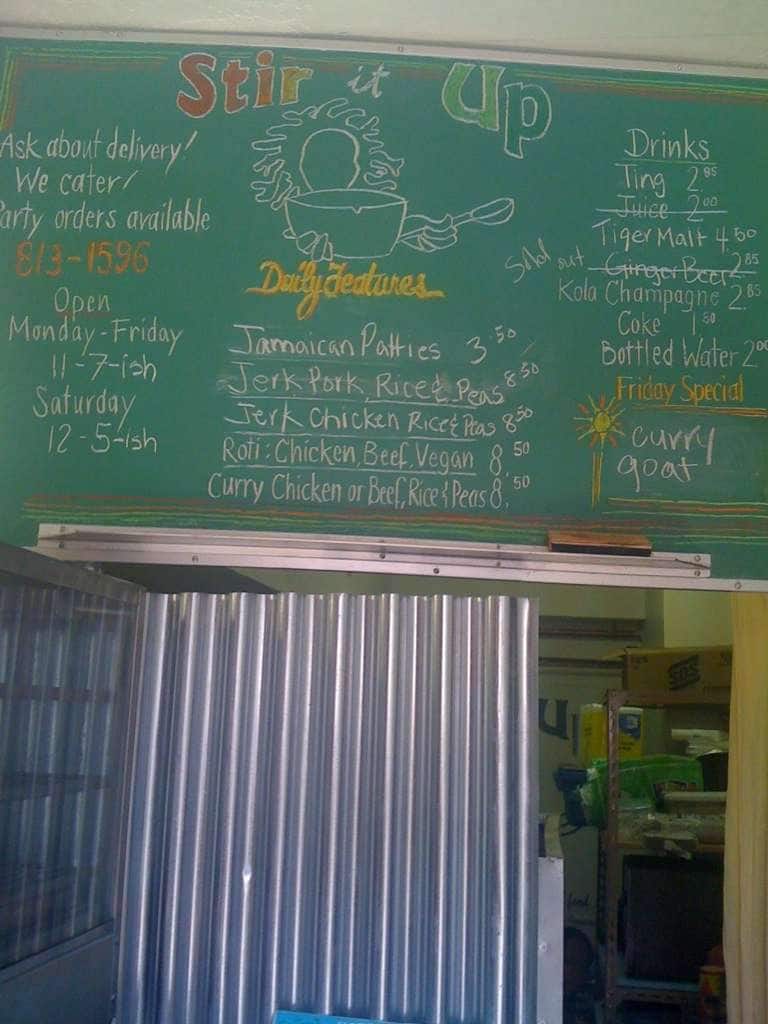 Stir it Up
Ask about delivery!
We cater!
Party orders available
813-1596
Open
Monday-Friday
11-7-ish
Saturday
12-5-ish
Daily Features
Jamaican Patties 3.50
Jerk Pork, Rice & Peas 8.50
Jerk Chicken Rice & Peas 8.50
Roti: Chicken, Beef, Vegan 8.50
Curry Chicken or Beef, Rice & Peas 8.50
Drinks
Ting 2.85
Juice 2.00
Tiger Malt 4.50
Sold out Ginger Beer 2.85
Kola Champagne 2.85
Coke 1.50
Bottled Water 2.00
Friday Special
curry
goat
SOS
Up